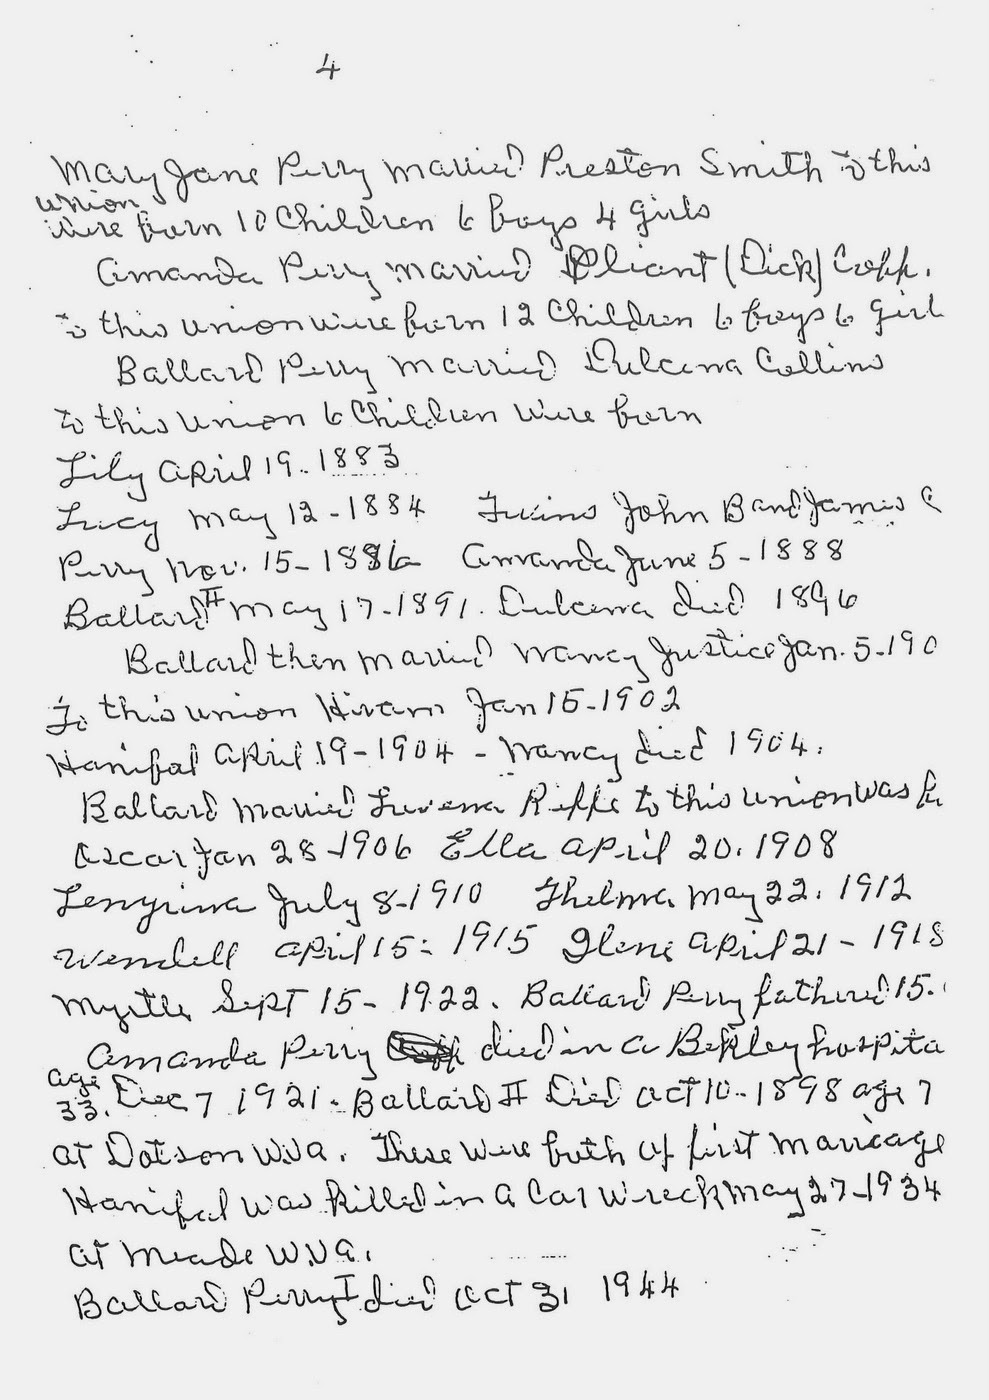 4
Mary Jane Perry married Preston Smith to this
union
were born 10 Children 6 boys 4 girls
Amanda Perry married Pliant (Dick) Copp.
to this union were born 12 Children 6 boys 6 Girl
Ballard Perry married Dulcena Collins
to this union 6 Children were born
Lily April 19. 1883
Lucy May 12-1884 Twins John B and James
Perry Nov. 15-1886 Amanda June 5-1888
Ballard II May 17-1891. Dulcena died 1896
Ballard then married Nancy Justice Jan. 5-190
To this union Hiram Jan 15-1902
Hanifal April 19-1904 - Nancy died 1904.
Ballard married Luvena Riffe to this union was
Oscar Jan 28-1906 Ella April 20. 1908
July 8-1910 Thelma May 22. 1912
Wendell April 15-1915 Ilene April 21-1918
Myrtle Sept 15-1922. Ballard Perry fathered 15.
Amanda Perry died in a Bekley hospita
age
33. Dec 7 1921. Ballard II Died Oct 10-1898 age 7
at Dotson W.Va. These were both of first marieage
Hanifal was killed in a Car wreck May 27-1934
at Meade W.Va.
Ballard Perry I died Oct 31 1944